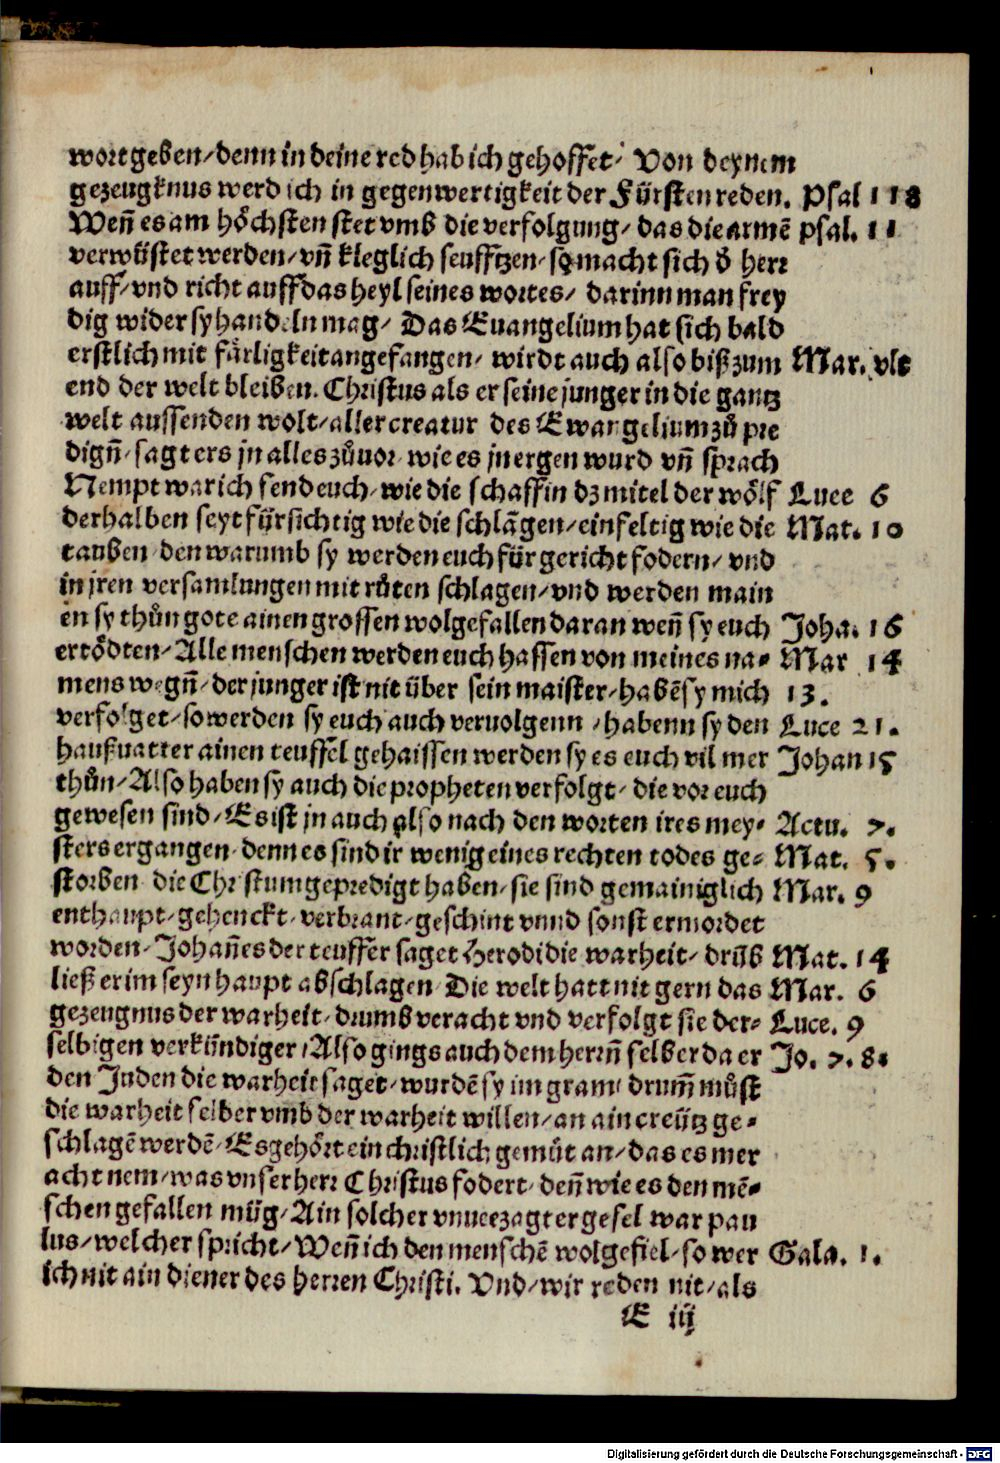 wort geben/ denn in deine red hab ich gehoffet/ Von deynem
gezeugknus werd ich in gegenwertigkeit der Fürsten reden. Psal 118
Weñ es am höchsten stet vmb die verfolgung/ das die armẽ psal. 11
verwüstet werden/ vñ kleglich seufftzen/ so macht sich ð herr
auff/ vnd richt auff das heyl seines wortes/ darinn man frey
dig wider sy handeln mag/ Das Euangelium hat sich bald
erstlich mit färligkeit angefangen/ wirdt auch also biß zum Mar. vlt
end der welt bleiben. Christus als er seine junger in die gantz
welt aussenden wolt/ aller creatur des Ewangelium zů pre
digñ/ sagt ers jn alles zůuor/ wie es jn ergen wurd vñ sprach
Nempt war ich send euch/ wie die schaff in dz mitel der wölf Luce 6
derhalben seyt fürsichtig wie die schlãgen/ einfeltig wie die Mat. 10
tauben/ den warumb sy werden euch für gericht fodern/ vnd
in jren versamlungen mit růten schlagen/ vnd werden main
en sy thůn gote ainen grossen wolgefallen daran weñ sy euch Joha. 16
ertödten/ Alle menschen werden euch hassen von meines na- Mar 14
mens wegñ/ der junger ist nit über sein maister/ habẽ sy mich 13.
verfolget/ so werden sy euch auch veruolgenn/ habenn sy den Luce 21.
haußuatter ainen teuffel gehaissen werden sy es euch vil mer Johan 15
thůn/ Also haben sy auch die propheten verfolgt/ die vor euch
gewesen sind/ Es ist jn auch also nach den worten ires mey- Actu. 7.
sters ergangen/ denn es sind ir wenig eines rechten todes ge- Mat. 5.
storben die Christum gepredigt haben/ sie sind gemainiglich Mar. 9
enthaupt/ gehenckt/ verbrant/ geschint vnnd sonst ermordet
worden/ Johañes der teuffer saget Herodi die warheit/ drũb Mat. 14
ließ er im seyn haupt abschlagen/ Die welt hatt nit gern das Mar. 6
gezeugnus der warheit/ drumb veracht vnd verfolgt sie der- Luce. 9
selbigen verkündiger/ Also gings auch dem herrñ selber da er Jo. 7. 8.
den Juden die warheit saget/ wurdẽ sy im gram/ drum̃ můst
die warheit selber vmb der warheit willen/ an ain creütz ge-
schlagẽ werdẽ/ Es gehört ein christlich gemüt an/ das es mer
acht nem/ was vnser herr Christus fodert/ deñ wie es den mẽ-
schen gefallen müg/ Ain solcher vnuerzagter gesel war pau
lus/ welcher spricht/ Weñ ich den menschẽ wolgefiel/ so wer Gala. 1.
ich nit ain diener des herren Christi. Vnd/ wir reden nit/ als
E iij
Digitalisierung gefördert durch die Deutsche Forschungsgemeinschaft - DFG